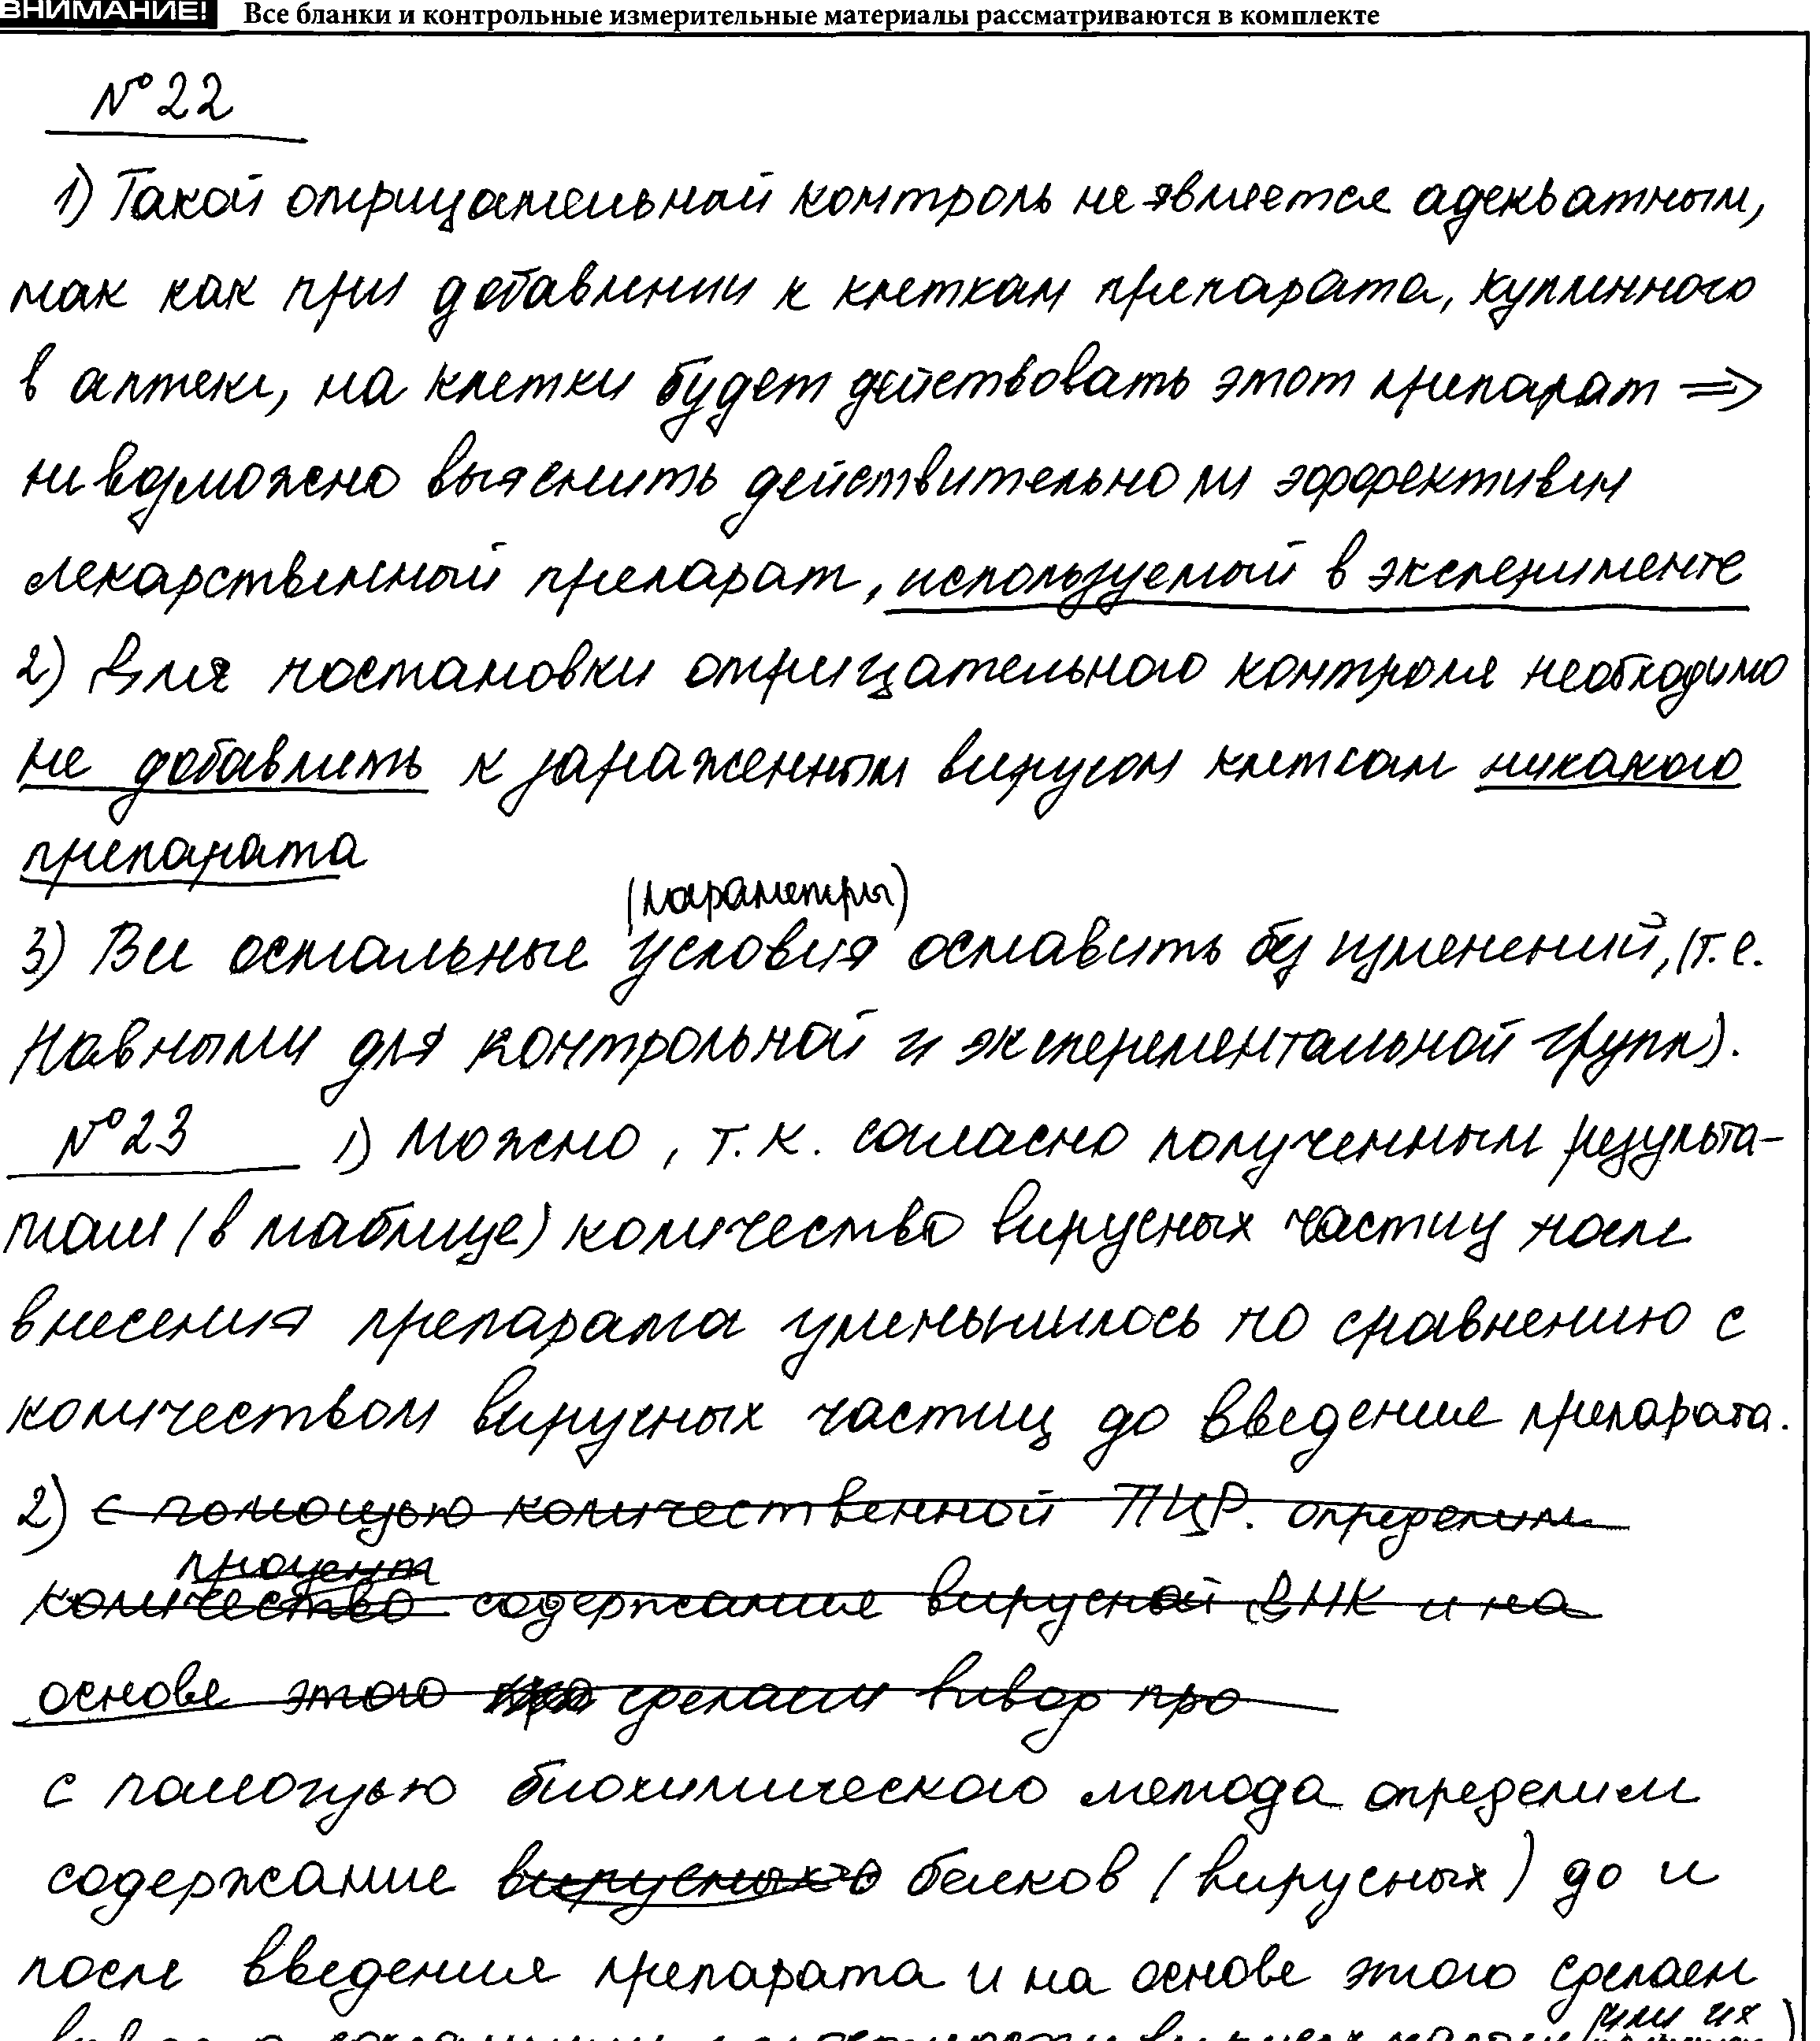 ВНИМАНИЕ! Все бланки и контрольные измерительные материалы рассматриваются в комплекте
№22
1) Такой отрицательный контроль не является адекватным,
так как при добавлении к клеткам препарата, купленного
в аптеке, на клетки будет действовать этот препарат ⇒
невозможно выяснить действительно ли эффективен
лекарственный препарат, используемый в эксперименте
2) Для постановки отрицательного контроля необходимо
не добавлять к зараженным вирусом клеткам никакого
препарата
(параметры)
3) Все остальные условия оставить без изменений, (т.е.
равными для контрольной и эксперементальной групп).
№23 1) Можно, т.к. согласно полученным результа-
там (в таблице) количество вирусных частиц после
внесения препарата уменьшилось по сравнению с
количеством вирусных частиц до введение препарата.
2) с помощью количественной ПЦР. определим
процент
количество содержание вирусной ДНК и на
основе этого сделаем вывод про
с помощью биохимического метода определим
содержание вирусных белков (вирусных) до и
после введение препарата и на основе этого сделаем
или их